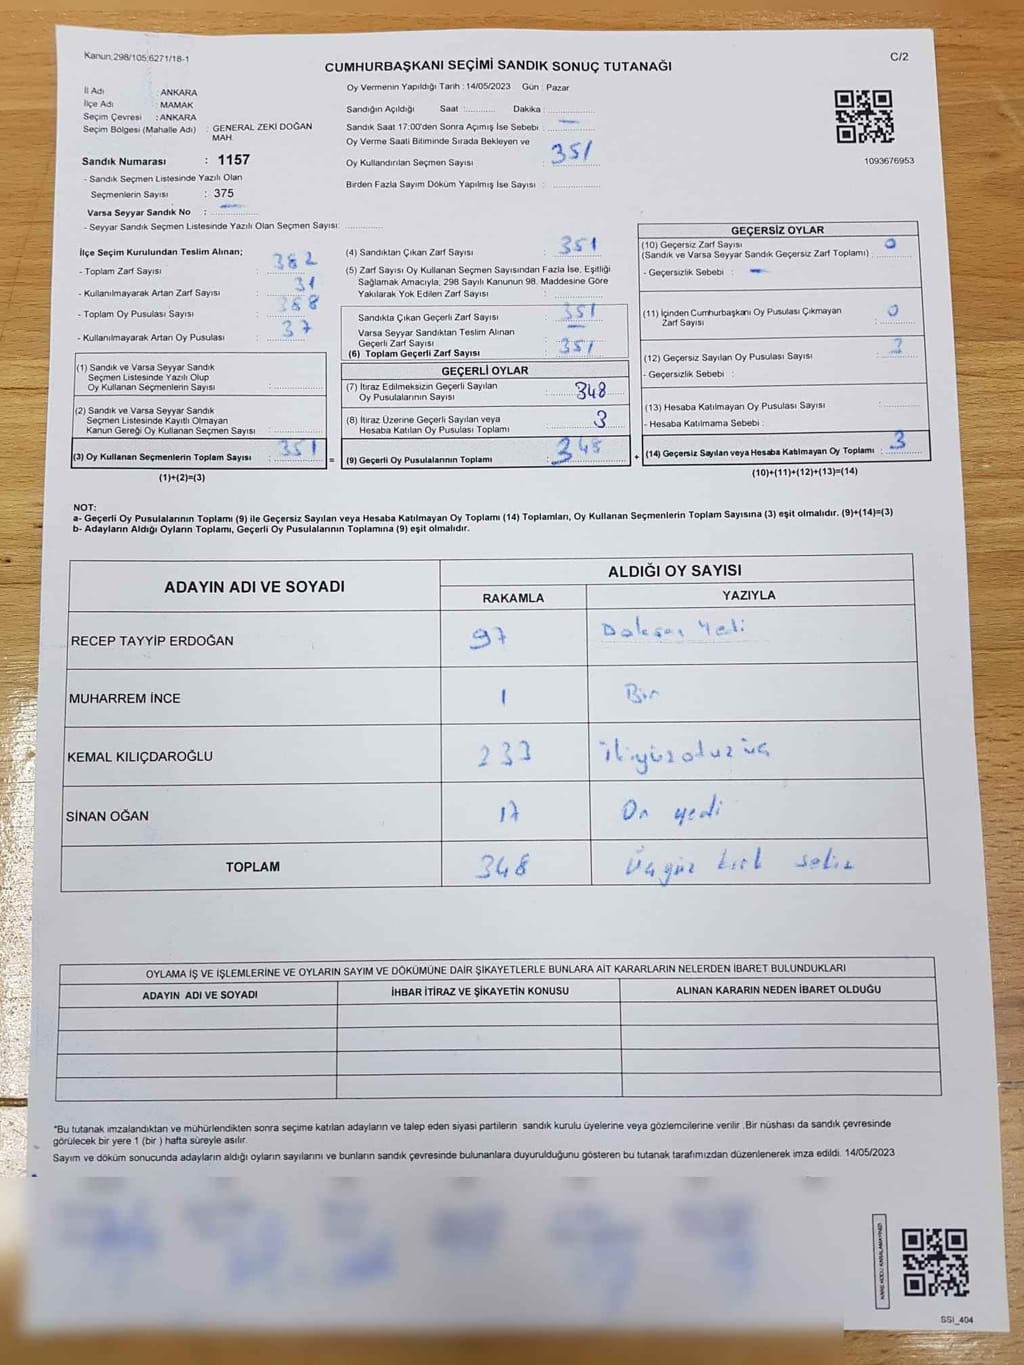 Kanun:298/105;6271/18-1
C/2
CUMHURBAŞKANI SEÇİMİ SANDIK SONUÇ TUTANAĞI
İl Adı : ANKARA
İlçe Adı : MAMAK
Seçim Çevresi : ANKARA
Seçim Bölgesi (Mahalle Adı) : GENERAL ZEKİ DOĞAN MAH.
Sandık Numarası : 1157
- Sandık Seçmen Listesinde Yazılı Olan
Seçmenlerin Sayısı : 375
Varsa Seyyar Sandık No : —
- Seyyar Sandık Seçmen Listesinde Yazılı Olan Seçmen Sayısı:
Oy Vermenin Yapıldığı Tarih : 14/05/2023 Gün : Pazar
Sandığın Açıldığı Saat : Dakika :
Sandık Saat 17:00'den Sonra Açımış İse Sebebi : —
Oy Verme Saati Bitiminde Sırada Bekleyen ve
Oy Kullandırılan Seçmen Sayısı : 351
Birden Fazla Sayım Döküm Yapılmış İse Sayısı :
1093676953
İlçe Seçim Kurulundan Teslim Alınan;
- Toplam Zarf Sayısı : 382
- Kullanılmayarak Artan Zarf Sayısı : 31
- Toplam Oy Pusulası Sayısı : 388
- Kullanılmayarak Artan Oy Pusulası : 37
(1) Sandık ve Varsa Seyyar Sandık
Seçmen Listesinde Yazılı Olup
Oy Kullanan Seçmenlerin Sayısı :
(2) Sandık ve Varsa Seyyar Sandık
Seçmen Listesinde Kayıtlı Olmayan
Kanun Gereği Oy Kullanan Seçmen Sayısı :
(3) Oy Kullanan Seçmenlerin Toplam Sayısı : 351
(1)+(2)=(3)
=
(4) Sandıktan Çıkan Zarf Sayısı : 351
(5) Zarf Sayısı Oy Kullanan Seçmen Sayısından Fazla İse, Eşitliği
Sağlamak Amacıyla, 298 Sayılı Kanunun 98. Maddesine Göre
Yakılarak Yok Edilen Zarf Sayısı :
Sandıkta Çıkan Geçerli Zarf Sayısı : 351
Varsa Seyyar Sandıktan Teslim Alınan
Geçerli Zarf Sayısı : —
(6) Toplam Geçerli Zarf Sayısı : 351
GEÇERLİ OYLAR
(7) İtiraz Edilmeksizin Geçerli Sayılan
Oy Pusulalarının Sayısı : 348
(8) İtiraz Üzerine Geçerli Sayılan veya
Hesaba Katılan Oy Pusulası Toplamı : 3
(9) Geçerli Oy Pusulalarının Toplamı : 348
+
GEÇERSİZ OYLAR
(10) Geçersiz Zarf Sayısı
(Sandık ve Varsa Seyyar Sandık Geçersiz Zarf Toplamı) : 0
- Geçersizlik Sebebi : —
(11) İçinden Cumhurbaşkanı Oy Pusulası Çıkmayan
Zarf Sayısı : 0
(12) Geçersiz Sayılan Oy Pusulası Sayısı : 3
- Geçersizlik Sebebi :
(13) Hesaba Katılmayan Oy Pusulası Sayısı :
- Hesaba Katılmama Sebebi :
(14) Geçersiz Sayılan veya Hesaba Katılmayan Oy Toplamı : 3
(10)+(11)+(12)+(13)=(14)
NOT:
a- Geçerli Oy Pusulalarının Toplamı (9) ile Geçersiz Sayılan veya Hesaba Katılmayan Oy Toplamı (14) Toplamları, Oy Kullanan Seçmenlerin Toplam Sayısına (3) eşit olmalıdır. (9)+(14)=(3)
b- Adayların Aldığı Oyların Toplamı, Geçerli Oy Pusulalarının Toplamına (9) eşit olmalıdır.
ADAYIN ADI VE SOYADI
ALDIĞI OY SAYISI
RAKAMLA YAZIYLA
RECEP TAYYİP ERDOĞAN 97 Doksan Yedi
MUHARREM İNCE 1 Bir
KEMAL KILIÇDAROĞLU 233 ikiyüzotuzüç
SİNAN OĞAN 17 On yedi
TOPLAM 348 Üçyüz kırk sekiz
OYLAMA İŞ VE İŞLEMLERİNE VE OYLARIN SAYIM VE DÖKÜMÜNE DAİR ŞİKAYETLERLE BUNLARA AİT KARARLARIN NELERDEN İBARET BULUNDUKLARI
ADAYIN ADI VE SOYADI İHBAR İTİRAZ VE ŞİKAYETİN KONUSU ALINAN KARARIN NEDEN İBARET OLDUĞU
*Bu tutanak imzalandıktan ve mühürlendikten sonra seçime katılan adayların ve talep eden siyasi partilerin sandık kurulu üyelerine veya gözlemcilerine verilir .Bir nüshası da sandık çevresinde
görülecek bir yere 1 (bir ) hafta süreyle asılır.
Sayım ve döküm sonucunda adayların aldığı oyların sayılarını ve bunların sandık çevresinde bulunanlara duyurulduğunu gösteren bu tutanak tarafımızdan düzenlenerek imza edildi. 14/05/2023
KARE KODU KARALAMAYINIZ!
SSI_404